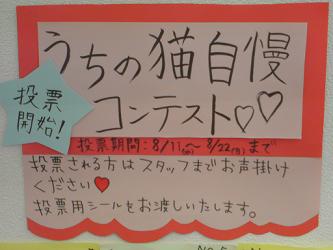 うちの猫自慢
コンテスト♡♡
投票
開始!
投票期間:8/11〜8/22(月)まで
投票される方はスタッフまでお声掛け
ください♥
投票用シールをお渡しいたします。